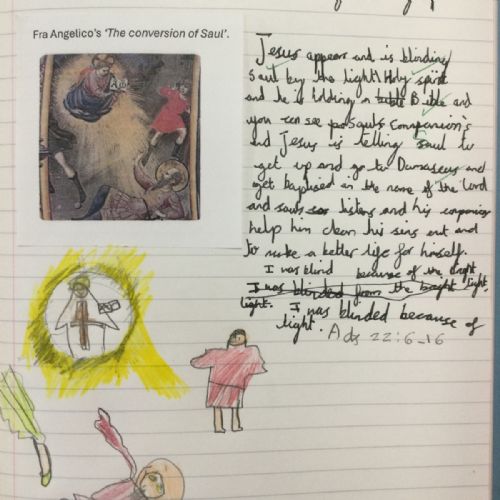 Fra Angelico's 'The conversion of Saul'.
Jesus appears and is blinding
Saul by the light Holy spirit
and he is holding a bible Bible and
you can see Saul's Companion's
and Jesus is telling Saul to
get up and go to Damascus and
get baptised in the name of the Lord
and sauls listens and his companions
help him clean his sins out and
to make a better life for himself.
I was blind because of the bright
I was blinded from the bright light.
light. I was blinded because of
light. Acts 22:6-16